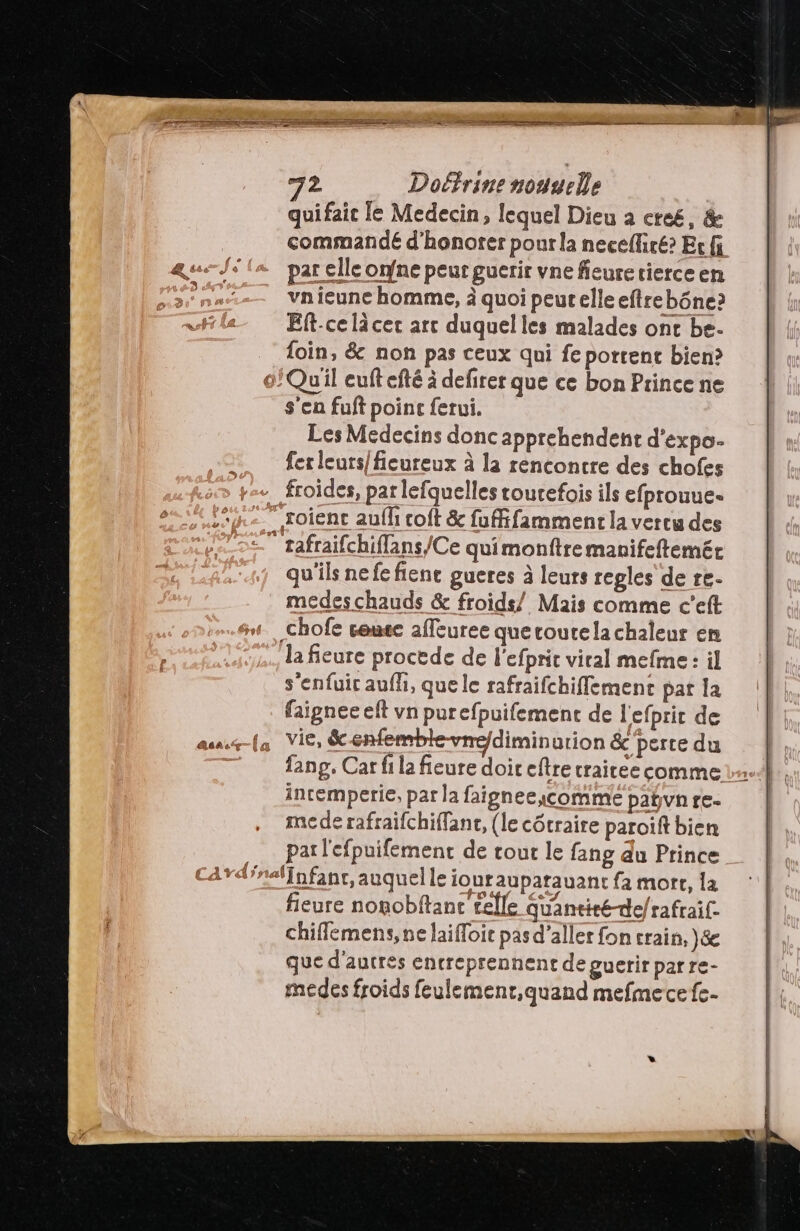 72 Doctrine nouuelle
qui fait le Medecin, lequel Dieu a creé, &
commandé d'honorer pour la necessité? Et si
par elle on ne peut guerir vne fieure tierce en
vn ieune homme, à quoi peut elle estre bóne?
Est-ce là cet art duquel les malades ont be-
soin, & non pas ceux qui se portent bien?
o! Qu'il eust esté à desirer que ce bon Prince ne
s'en fust point serui.
Les Medecins donc apprehendent d'expo-
ser leurs fieureux à la rencontre des choses
froides, par lesquelles toutefois ils esprouue-
roient aussi tost & suffisamment la vertu des
rafraischissans/Ce qui monstre manifestemét
qu'ils ne se fient gueres à leurs regles de re-
medes chauds & froids/ Mais comme c'est
chose toute asseuree que toute la chaleur en
la fieure procede de l'esprit vital mesme: il
s'enfuit aussi, que le rafraischissement par la
saignee est vn pur espuisement de l'esprit de
vie, & ensemble vne diminution & perte du
sang. Car si la fieure doit estre traitee comme
intemperie, par la saignee, comme par vn re-
mede rafraischissant, (le cótraire paroist bien
par l'espuisement de tout le sang du Prince
cardinal Infant, auquel le iour auparauant sa mort, la
fieure nonobstant telle quantité de rafrais-
chissemens, ne laissoit pas d'aller son train,) &
que d'autres entreprennent de guerir par re-
medes froids seulement, quand mesme ce se-